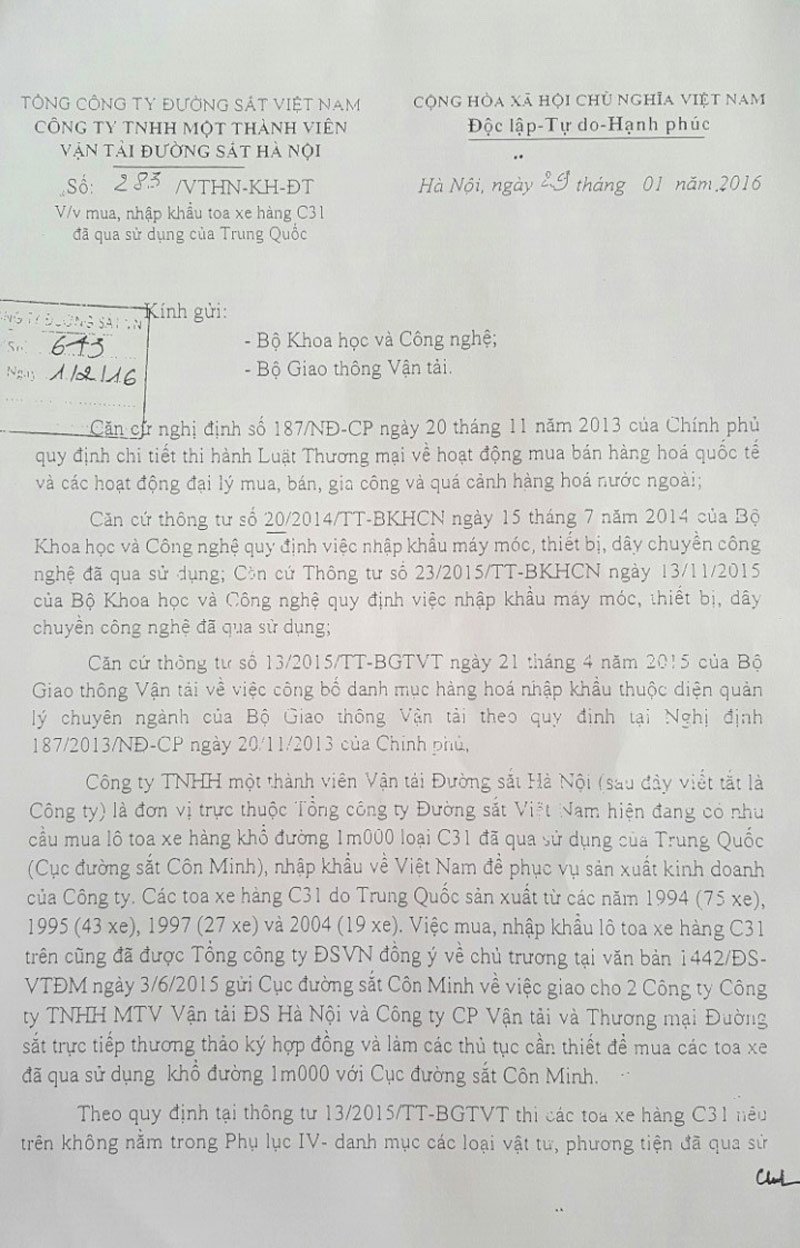 TỔNG CÔNG TY ĐƯỜNG SẮT VIỆT NAM
CÔNG TY TNHH MỘT THÀNH VIÊN
VẬN TẢI ĐƯỜNG SẮT HÀ NỘI
Số: 283 /VTHN-KH-ĐT
V/v mua, nhập khẩu toa xe hàng C31
đã qua sử dụng của Trung Quốc
CỘNG HÒA XÃ HỘI CHỦ NGHĨA VIỆT NAM
Độc lập-Tự do-Hạnh phúc
Hà Nội, ngày 29 tháng 01 năm 2016
TY ĐƯỜNG SẮT VN
Số: 613
Ngày 1/2/16
Kính gửi:
- Bộ Khoa học và Công nghệ;
- Bộ Giao thông Vận tải.
Căn cứ nghị định số 187/NĐ-CP ngày 20 tháng 11 năm 2013 của Chính phủ
quy định chi tiết thi hành Luật Thương mại về hoạt động mua bán hàng hoá quốc tế
và các hoạt động đại lý mua, bán, gia công và quá cảnh hàng hoá nước ngoài;
Căn cứ thông tư số 20/2014/TT-BKHCN ngày 15 tháng 7 năm 2014 của Bộ
Khoa học và Công nghệ quy định việc nhập khẩu máy móc, thiết bị, dây chuyền công
nghệ đã qua sử dụng; Căn cứ Thông tư số 23/2015/TT-BKHCN ngày 13/11/2015
của Bộ Khoa học và Công nghệ quy định việc nhập khẩu máy móc, thiết bị, dây
chuyền công nghệ đã qua sử dụng;
Căn cứ thông tư số 13/2015/TT-BGTVT ngày 21 tháng 4 năm 2015 của Bộ
Giao thông Vận tải về việc công bố danh mục hàng hoá nhập khẩu thuộc diện quản
lý chuyên ngành của Bộ Giao thông Vận tải theo quy định tại Nghị định
187/2013/NĐ-CP ngày 20/11/2013 của Chính phủ,
Công ty TNHH một thành viên Vận tải Đường sắt Hà Nội (sau đây viết tắt là
Công ty) là đơn vị trực thuộc Tổng công ty Đường sắt Việt Nam hiện đang có nhu
cầu mua lô toa xe hàng khổ đường 1m000 loại C31 đã qua sử dụng của Trung Quốc
(Cục đường sắt Côn Minh), nhập khẩu về Việt Nam để phục vụ sản xuất kinh doanh
của Công ty. Các toa xe hàng C31 do Trung Quốc sản xuất từ các năm 1994 (75 xe),
1995 (43 xe), 1997 (27 xe) và 2004 (19 xe). Việc mua, nhập khẩu lô toa xe hàng C31
trên cũng đã được Tổng công ty ĐSVN đồng ý về chủ trương tại văn bản 1442/ĐS-
VTĐM ngày 3/6/2015 gửi Cục đường sắt Côn Minh về việc giao cho 2 Công ty Công
ty TNHH MTV Vận tải ĐS Hà Nội và Công ty CP Vận tải và Thương mại Đường
sắt trực tiếp thương thảo ký hợp đồng và làm các thủ tục cần thiết để mua các toa xe
đã qua sử dụng khổ đường 1m000 với Cục đường sắt Côn Minh.
Theo quy định tại thông tư 13/2015/TT-BGTVT thì các toa xe hàng C31 nêu
trên không nằm trong Phụ lục IV- danh mục các loại vật tư, phương tiện đã qua sử